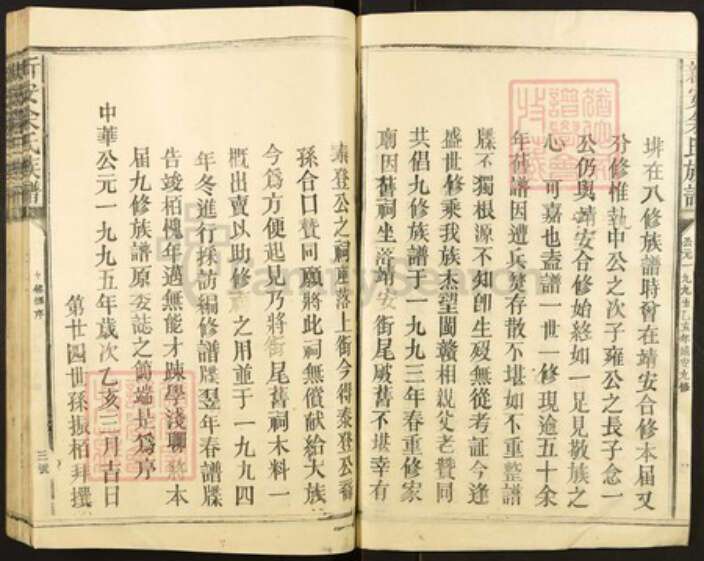 新安余氏族譜
公元一九九五乙亥年靖安九修
垪在八修族譜時會在靖安合修本屆又
分修惟執中公之次子雍公之長子念一
公仍與靖安合修始終如一足見敬族之
心可嘉也蓋譜一世一修現逾五十余
年舊譜因遭兵燹存散不堪如不重整譜
牒不獨根源不知卽生歿無從考証今逢
盛世修乘我族杰望閩贛相説父老贊同
共倡九修族譜于一九九三年春重修家
廟因舊祠坐落靖安街尾廢舊不堪幸有
泰登公之祠座落上街今得泰登公裔
孫合口贊同願將此祠無償献給大族
今爲方便起見乃將街尾舊祠木料一
概出賣以助修 之用並于一九九四
年冬進行採訪編修譜牒翌年春譜牒
告竣栢愧年邁無能才踈學淺聊 本
届九修族譜原委誌之簡端是爲序
中華公元一九九五年歲次乙亥三月吉日
第廿四世孫振栢拜撰
新安余氏族譜
序
三號
FamilySearch